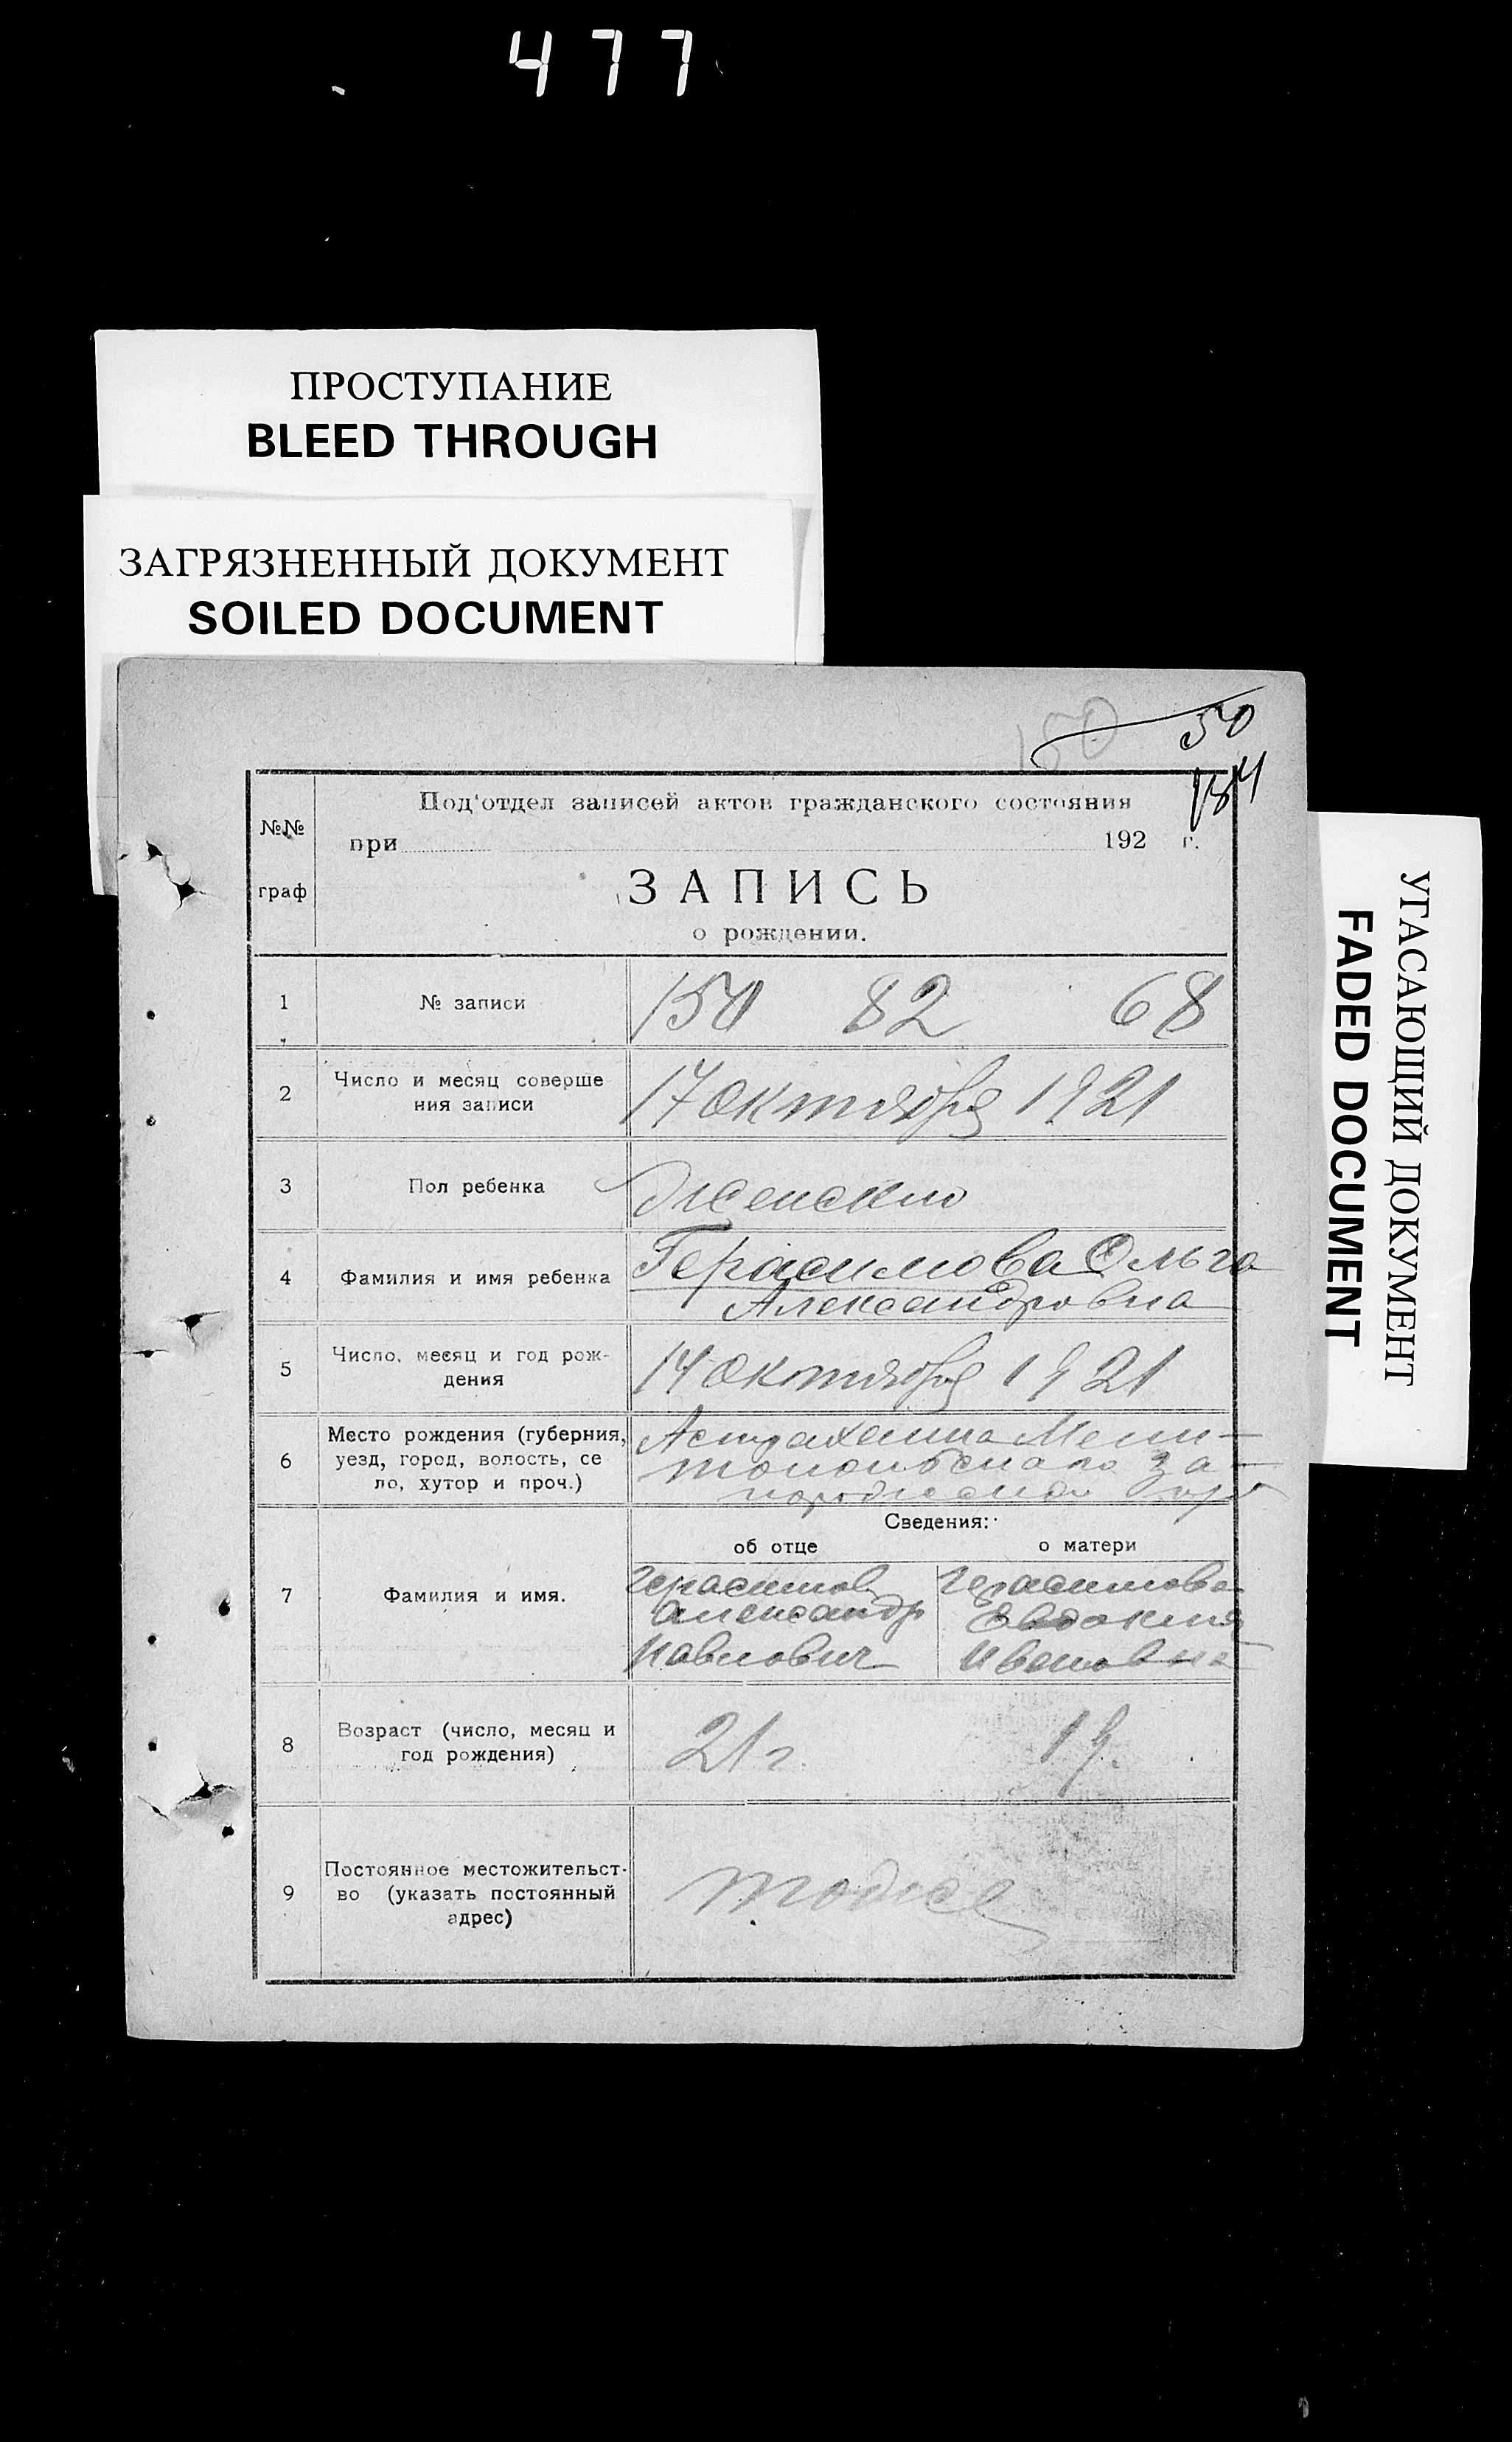 477
ПРОСТУПАНИЕ
BLEED THROUGH
ЗАГРЯЗНЕННЫЙ ДОКУМЕНТ
SOILED DOCUMENT
УГАСАЮЩИЙ ДОКУМЕНТ
FADED DOCUMENT
150 50
184
№№ граф
Под'отдел записей актов гражданского состояния
при 192 г.
ЗАПИСЬ
о рождении.
1 № записи 150 82 68
2 Число и месяц соверше
ния записи
17 октября 1921
3 Пол ребенка Женский
4 Фамилия и имя ребенка Герасимова Ольга
Александровна
5 Число, месяц и год рож-
дения
14 октября 1921
6 Место рождения (губерния,
уезд, город, волость, се
ло, хутор и проч.)
Астраханка Мели-
За-
Сведения:
об отце о матери
7 Фамилия и имя.
Герасимов Герасимова
Александр Евдокия
Павлович Ивановна
8 Возраст (число, месяц и
год рождения)
21 г. 19.
9 Постоянное местожительст-
во (указать постоянный
адрес)
тоже